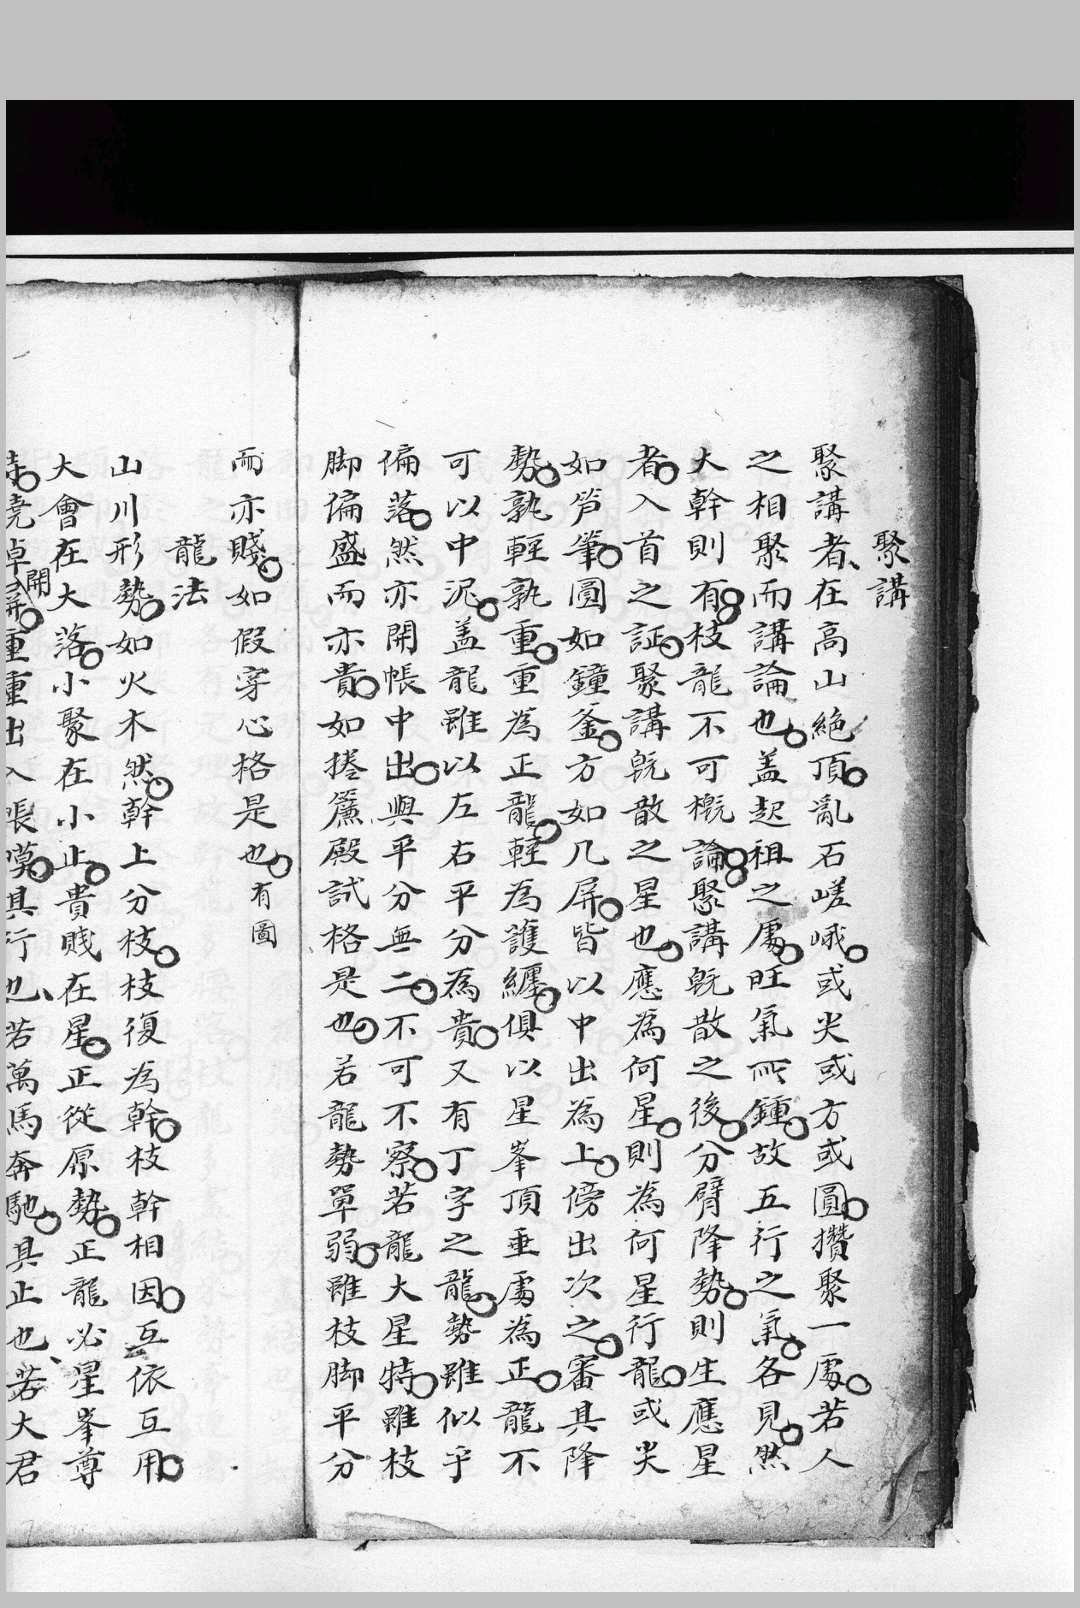 聚講
聚講者在高山絶頂亂石嵯峨或尖或方或圓攢聚一處若人
之相聚而講論也盖起祖之處旺氣所鍾故五行之氣各見然
大幹則有枝龍不可槪論聚講旣散之後分臂降勢則生應星
者入首之証聚講旣散之星也應爲何星則爲何星行龍或尖
如笋筆圓如鐘釜方如几屛皆以中出爲上傍出次之審其降
勢孰輕孰重重爲正龍輕爲護纏俱以星峯頂垂處爲正龍不
可以中泥盖龍雖以左右平分爲貴又有丁字之龍勢雖似乎
偏落然亦開帳中出與平分無二不可不察若龍大星特雖枝
脚偏盛而亦貴如捲簾殿試格是也若龍勢單弱雖枝脚平分
而亦賤如假穿心格是也有圖
龍法
山川形勢如火木然幹上分枝枝復爲幹枝幹相因互依互用
大會在大落小聚在小止貴賤在星正從原勢正龍必星峯尊
特嶢卓開屛重重出入帳幙其行也若萬馬奔馳其止也若大君